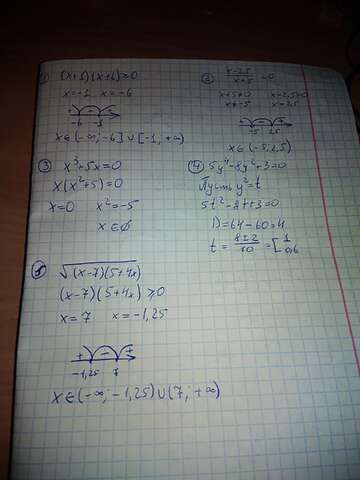 ① (x+1)(x+6)≥0
x=-1 x=-6
+ - +
-6 -1
x∈(-∞;-6]∪[-1;+∞)
② x-2,5 / x+5 <0
x+5≠0 x-2,5=0
x≠-5 x=2,5
+ - +
-5 2,5
x∈(-5;2,5)
③ x³+5x=0
x(x²+5)=0
x=0 x²=-5
x∈∅
④ 5y⁴-8y²+3=0
Пусть y²=t
5t²-8t+3=0
D=64-60=4
t= 8±2 / 10 =[ 1
0,6
⑤ √(x-7)(5+4x)
(x-7)(5+4x)≥0
x=7 x=-1,25
+ - +
-1,25 7
x∈(-∞;-1,25)∪(7;+∞)